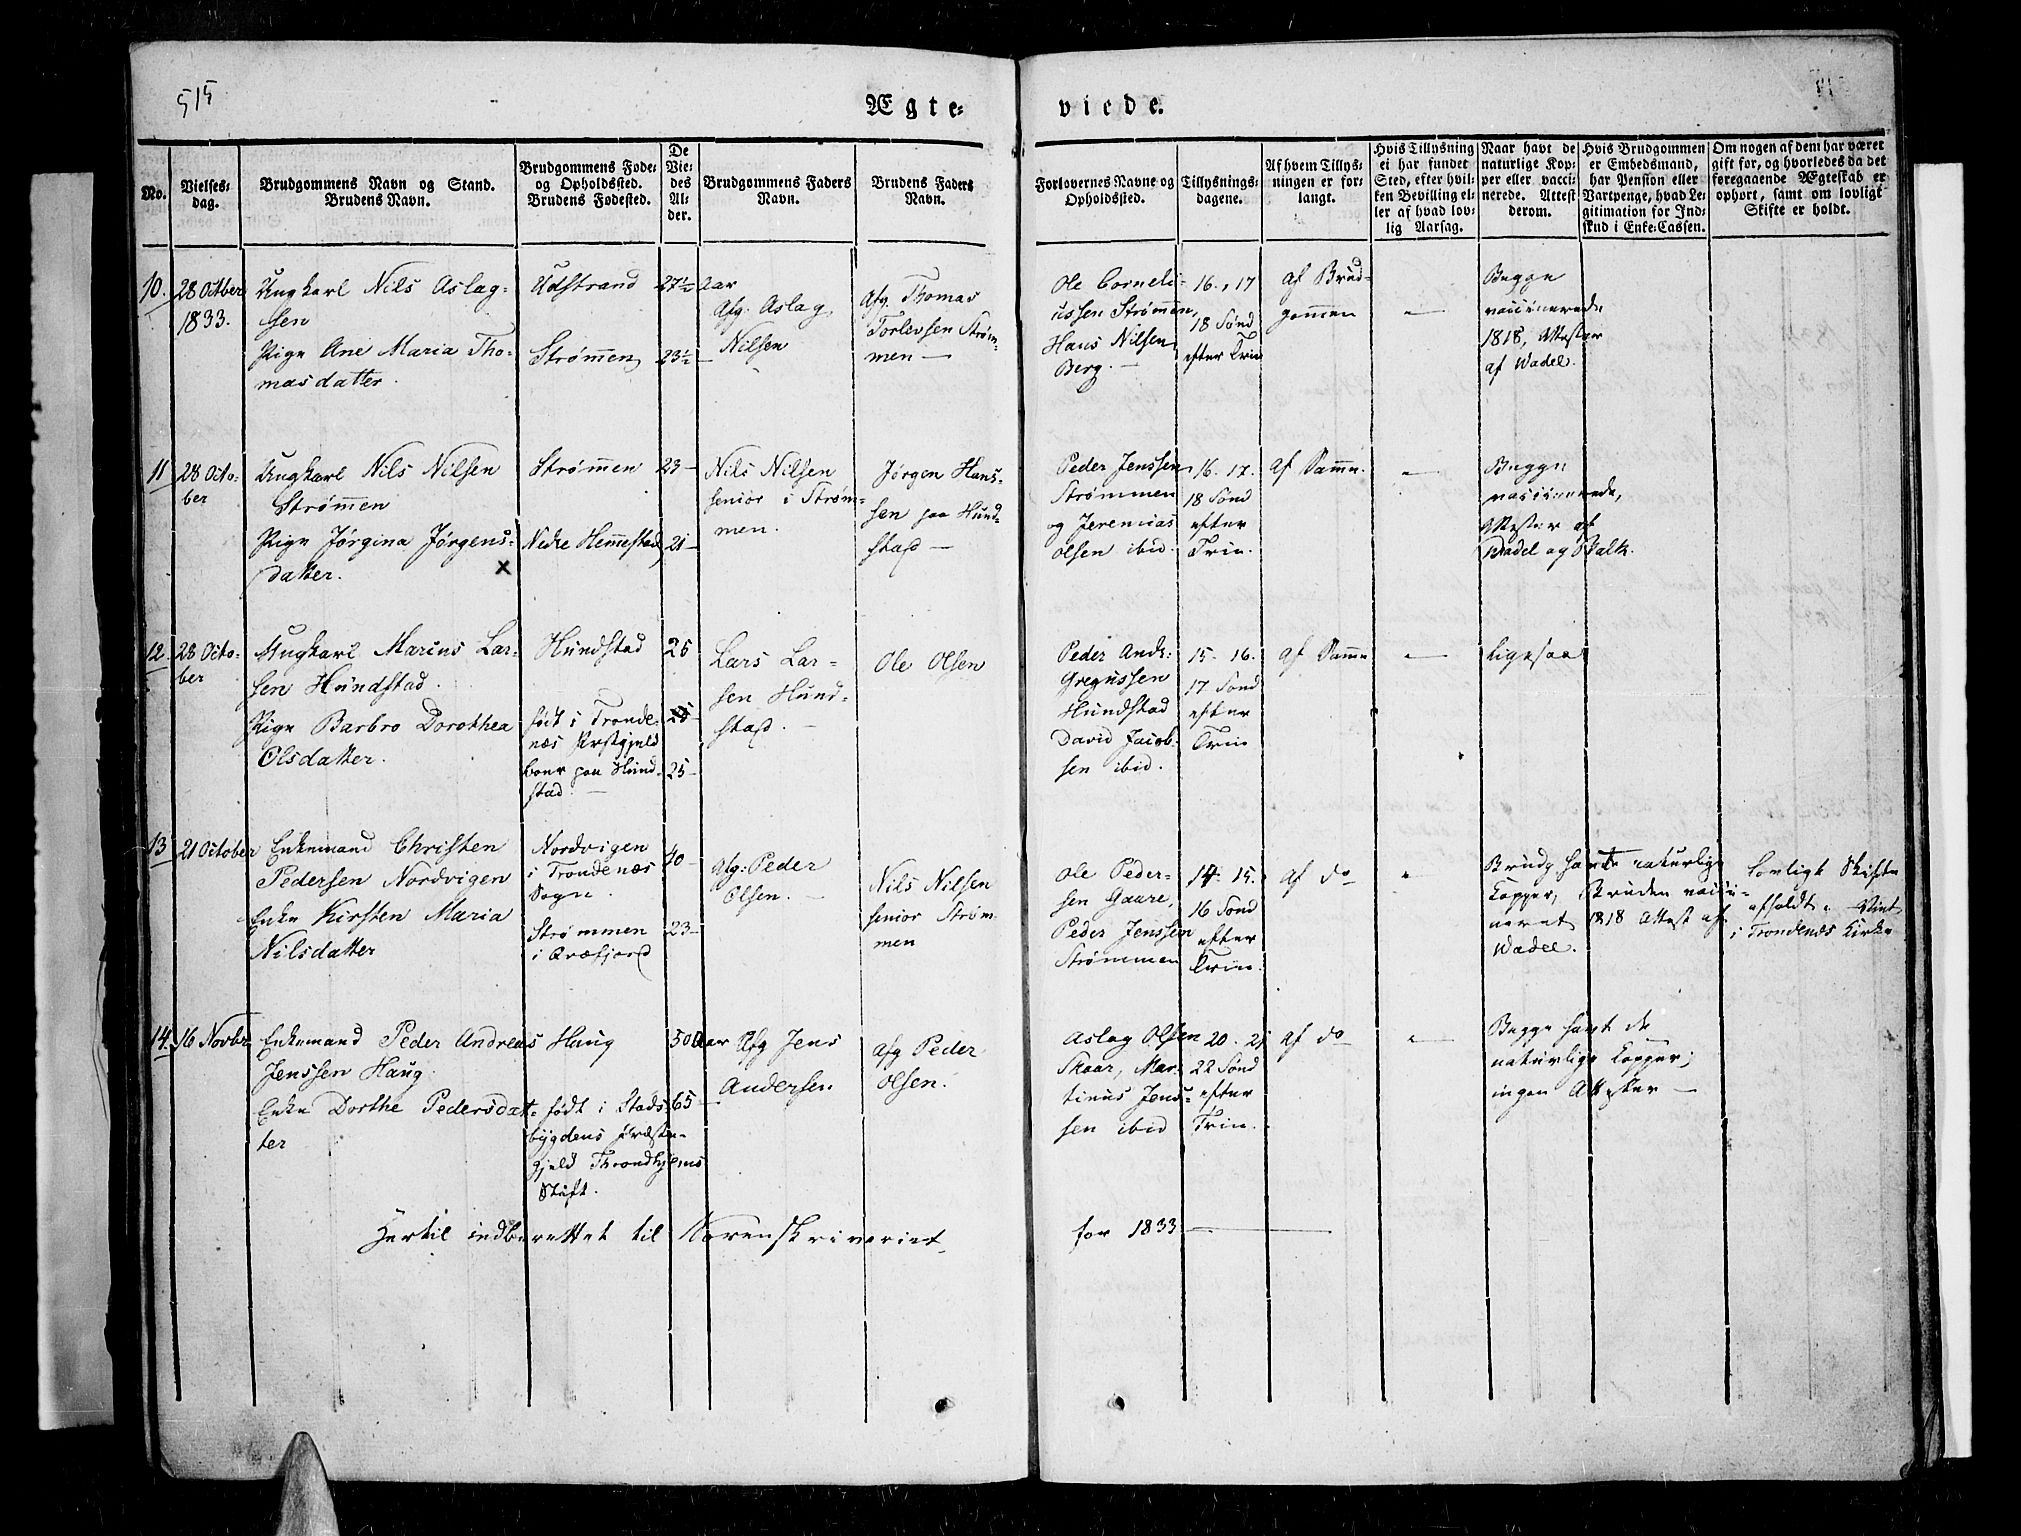 515
Ægte-
viede.
No.
Vielses-
dag.
Brudgommens Navn og Stand.
Brudens Navn.
Brudgommens Føde-
og Opholdssted.
Brudens Fødested.
De
Vie-
des
Al-
der.
Brudgommens Faders
Navn.
Brudens Faders
Navn.
Forlovernes Navne og
Opholdssted.
Tillysnings-
dagene.
Af hvem Tillys-
ningen er for-
langt.
Hvis Tillysning
ei har fundet
Sted, efter hvil-
ken Bevilling el-
ler af hvad lov-
lig Aarsag.
Naar havt de
naturlige Kop-
per eller vacci-
nerede. Attest
derom.
Hvis Brudgommen
er Embedsmand,
har Pension eller
Vartpenge, hvad Le-
gitimation for Ind-
skud i Enke-Cassen.
Om nogen af dem har været
gift før, og hvorledes da det
foregaaende Ægteskab er
ophørt, samt om lovligt
Skifte er holdt.
10.
28 Octber
1833.
Ungkarl Nils Aslag-
sen
Pige Ane Maria Tho-
masdatter.
Udstrand
Strømmen
27½ Aar
23½ —
Afg. Aslag
Nilsen
Afg. Thomas
Torlevsen Strøm-
men —
Ole Corneli-
ussen Strømmen,
Hans Nilsen
Berg. —
16., 17
18 Sønd
efter Trin
af Brud-
gommen
—
Begge
vaccinerede
1818, Attester
af Wadel.
11
28 Octo-
ber
Ungkarl Nils Nilsen
Strømmen
Pige Jørgina Jørgens-
datter.
x
Strømmen
Nedre Hemmestad
23 —
21 —
Nils Nilsen
senior i Strøm-
men.
Jørgen Hans-
sen paa Hund-
stad —
Peder Jenssen
Strømmen
og Jeremias
Olsen ibid.
16. 17.
18 Sønd
efter
Trin.
af Samme.
—
Begge
vaccinerede,
Attester af
Wadel og Falk.
12.
28 Octo-
ber
Ungkarl Marius Lar-
sen Hundstad.
Pige Barbro Dorothea
Olsdatter.
Hundstad
født i Tronde-
næs Prstgjeld
boer paa Hund-
stad. —
25
25 —
Lars Lar-
sen Hund-
stad. —
Ole Olsen
Peder Andr:
Gregussen
Hundstad
David Jacob-
sen ibid.
15. 16.
17 Sønd
efter
Trin
af Samme
—
ligesaa
13
21 October
Enkemand Christen
Pedersen Nordvigen
Enke Kirsten Maria
Nilsdatter
Nordvigen
i Trondenæs
Sogn.
Strømmen
i Qvæfjord
40 —
23 —
Afg: Peder
Olsen. —
Nils Nilsen
senior Strøm-
men
Ole Peder-
sen Gaare,
Peder Jenssen
Strømmen
14. 15.
16 Sønd
efter
Trin.
af do
Brudg havte naturlige
Kopper, Bruden vacci-
neret 1818 Attest af
Wadel.
Lovligt Skifte
afholdt. Viet
i Trondenæs Kirke
14.
16 Novbr
Enkemand Peder Andreas
Jenssen Haug.
Enke Dorthe Pedersdat-
ter
Haug
født i Stads-
bygdens Præste-
gjeld Throndhjems
Stift.
50 Aar
65 —
Afg Jens
Andersen
Afg Peder
Olsen.
Aslag Olsen
Skaar, Mar-
tinus Jens-
sen ibid
20. 21
22 Sønd
efter
Trin.
af do
—
Begge havt de
naturlige Kopper;
ingen Attester —
Hertil indberettet til Sorenskriveriet
for 1833 —